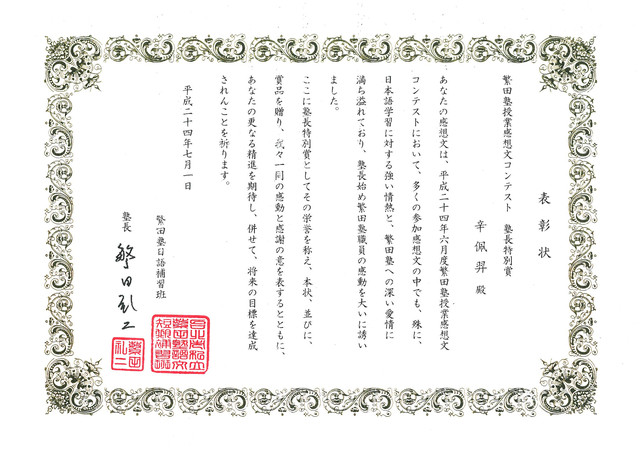 表彰状
繁田塾授業感想文コンテスト　塾長特別賞
辛佩羿　殿
あなたの感想文は、平成二十四年六月度繁田塾授業感想文
コンテストにおいて、多くの参加感想文の中でも、殊に、
日本語学習に対する強い情熱と、繁田塾への深い愛情に
満ち溢れており、塾長始め繁田塾職員の感動を大いに誘い
ました。
ここに塾長特別賞としてその学誉を称え、本状、並びに、
賞品を贈り、我々一同の感動と感謝の意を表するとともに、
あなたの更なる精進を期待し、併せて、将来の目標を達成
されんことを祈ります。
平成二十四年七月一日
繁田塾日語補習班
塾長　繁田